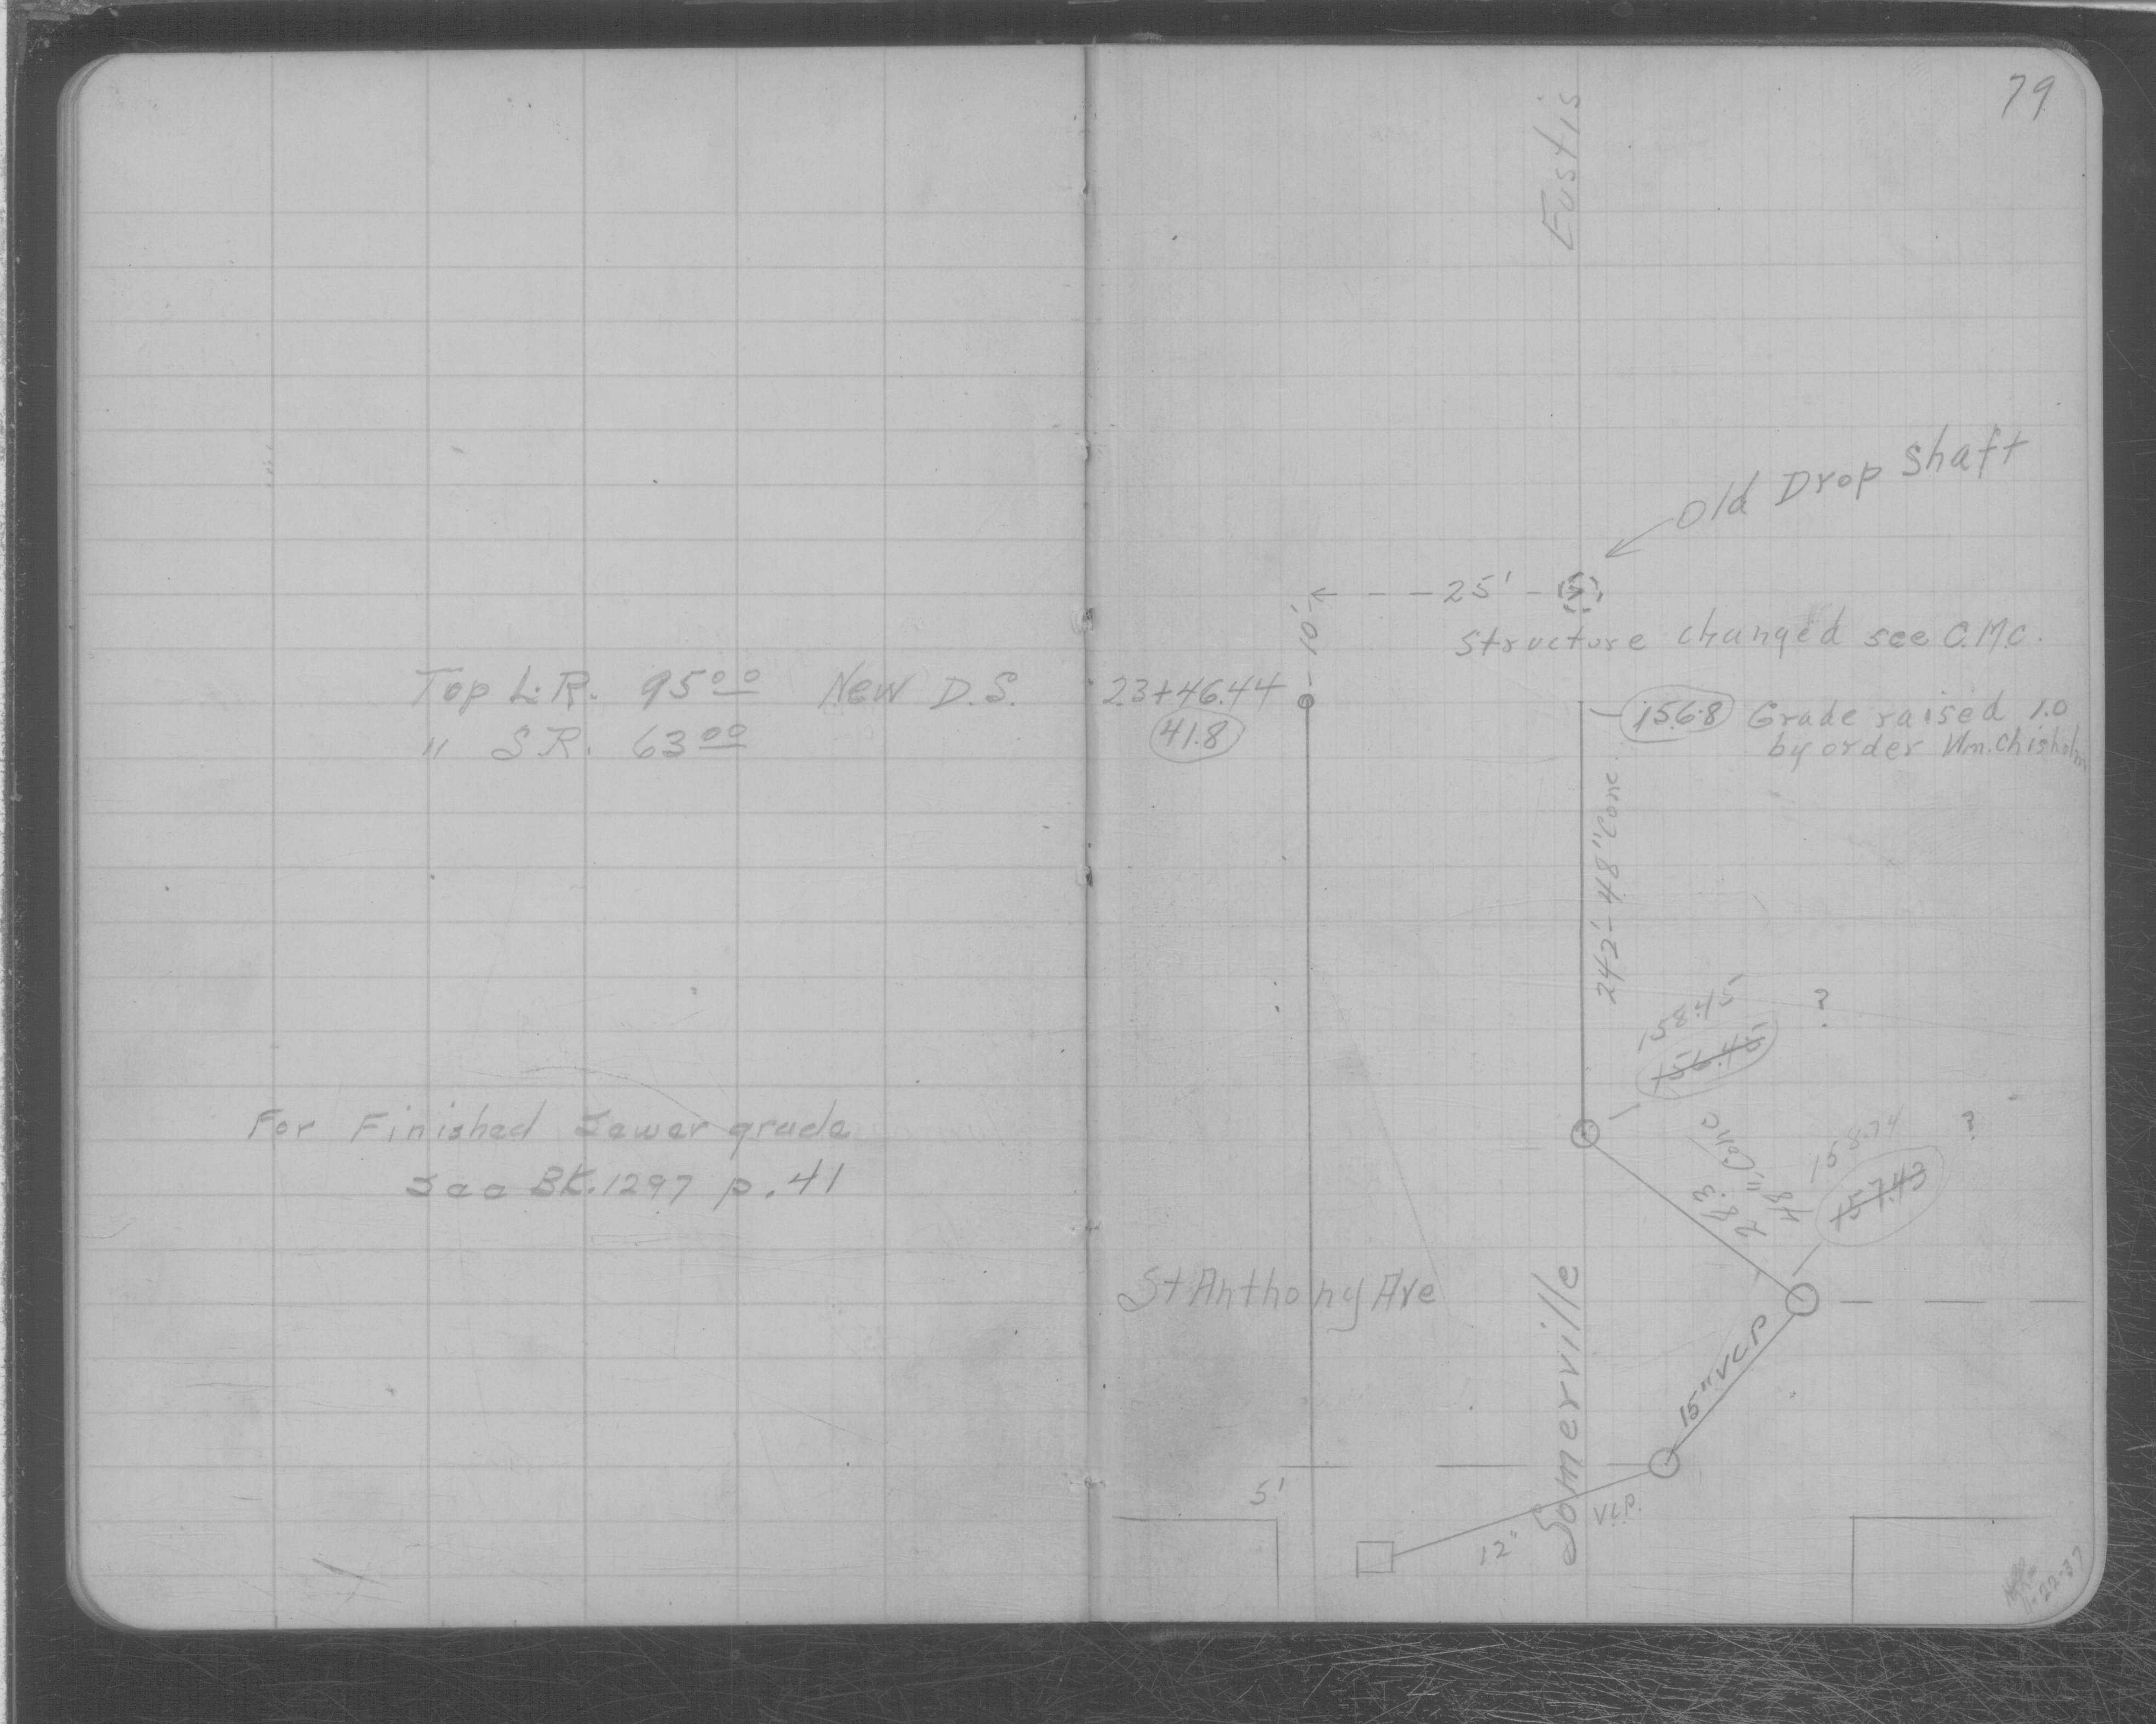 Top L.R. 95 00 New D.S.
" S.R. 63 00
For Finished Sewer grade
See BK. 1297 p. 41
79
Eustis
Old Drop Shaft
25'
10'
Structure changed see C.M.C.
23+46.44
41.8
156.8 Grade raised 1.0
by order Wm. Chisholm
242'-48" Conc.
158.45 ?
156.46
28.3
48" Conc
158.74 ?
157.43
St Anthony Ave
Somerville
15" VCP
5'
12" V.C.P.
22-37